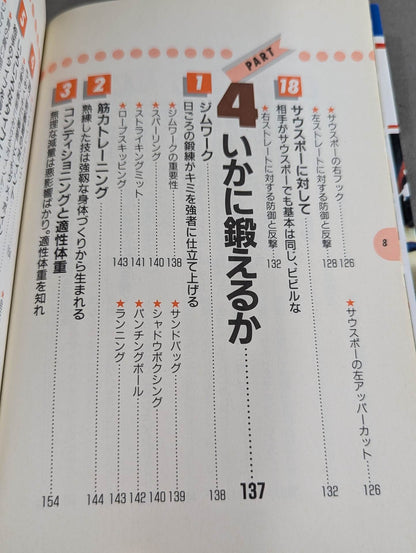 8
★サウスポーの左アッパーカット 126
★サウスポーの右フック 126
★左ストレートに対する防御と反撃 128
18 サウスポーに対して 132
相手がサウスポーでも基本は同じ、ビビルな
★右ストレートに対する防御と反撃 132
PART
4 いかに鍛えるか 137
1 ジムワーク 138
日ごろの鍛練がキミを強者に仕立て上げる
★ジムワークの重要性 138
★サンドバッグ 139
★スパーリング 140
★シャドウボクシング 140
★ストライキングミット 141
★パンチングボール 142
★ロープスキッピング 143
★ランニング 143
2 筋力トレーニング 144
熟練した技は強靱な身体づくりから生まれる
3 コンディショニングと適性体重 154
無理な減量は悪影響ばかり。適性体重を知れ